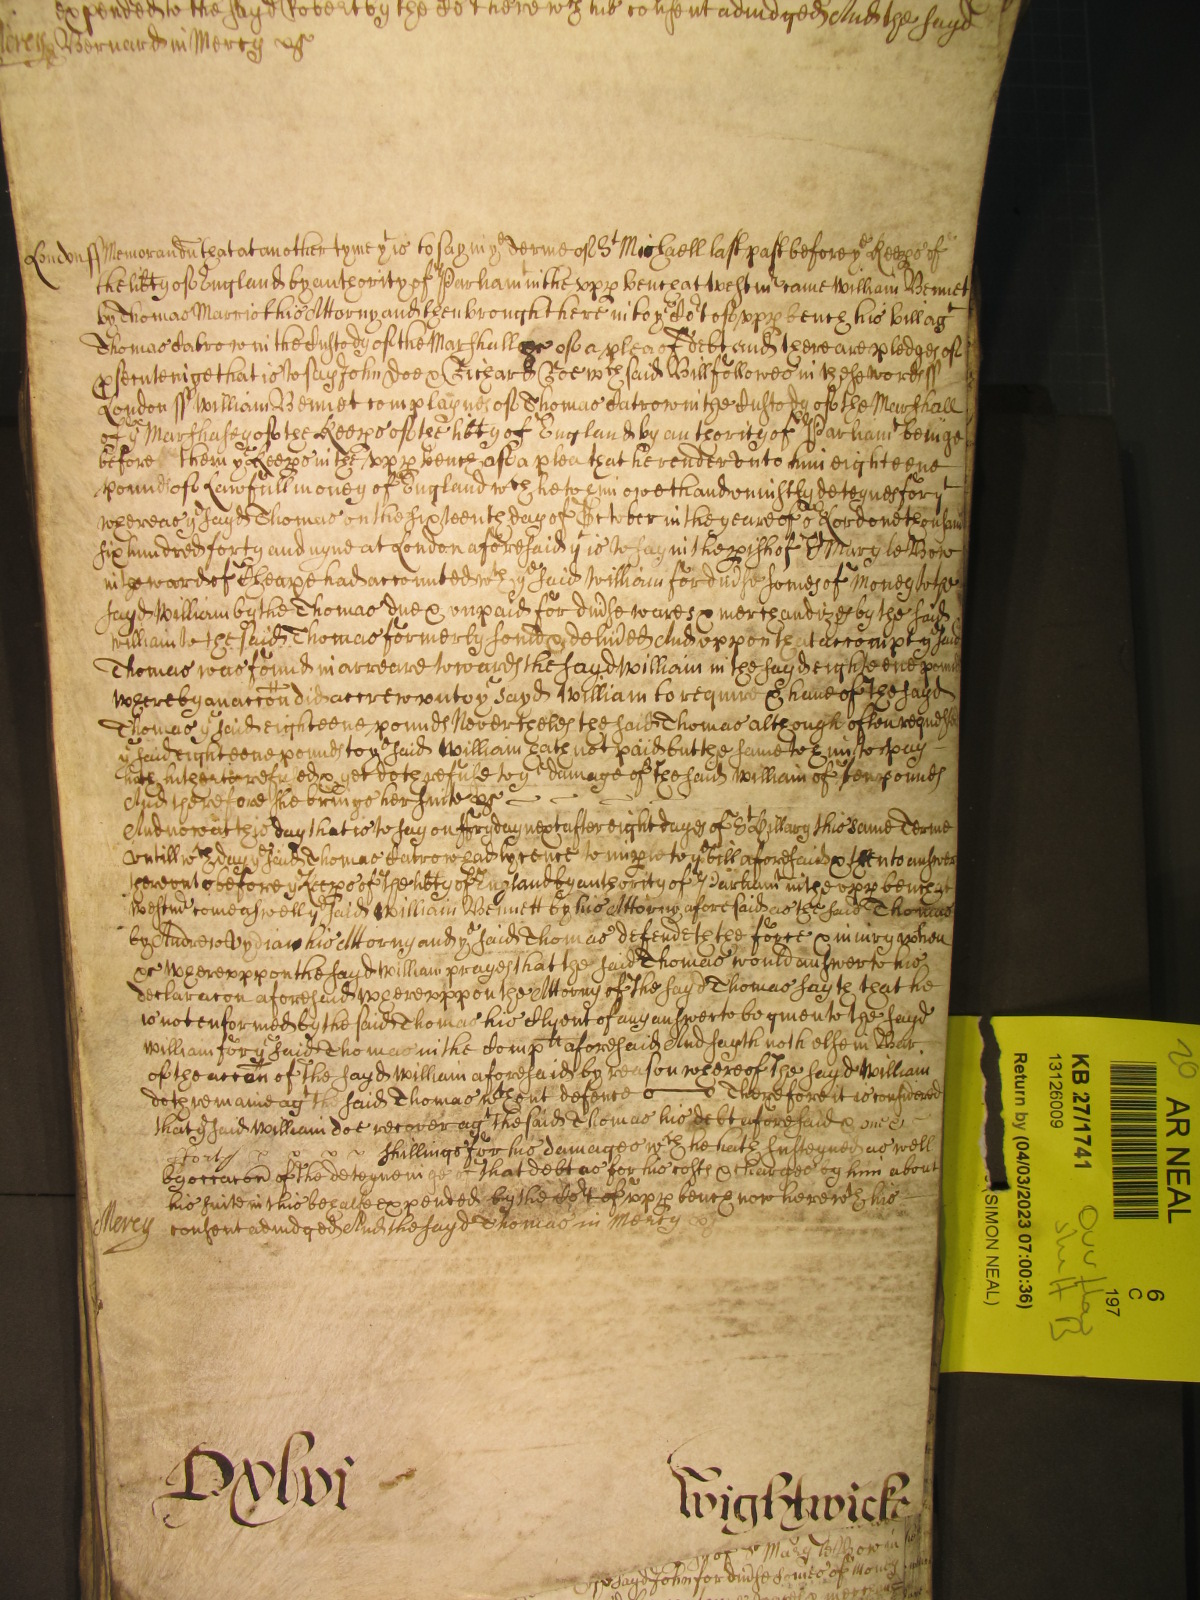 expended to the sayd Robert by the Co't here wth his consent adiudged And the sayd
Mercy Bernard in Mercy &c
London ss Memorand' that at another tyme yt is to say in ye Terme of St Michaell last past before ye Keep's of
the lib'ty of England by authority of Parliam't in the upp' bench at Westm' came William Bennet
by Thomas Marriot his Attorny and then brought here into ye Co't of upp' bench his bill ag't
Thomas Catrow in the Custody of the Marshall &c of a plea of debt and there are pledges of
p'secuteinge that is to say John Doe & Richard Roe wch said Bill followes in these words ss
London ss William Bennet complaynes of Thomas Catrow in the Custody of the Marshall
of ye Marshalsey of the Keep's of the lib'ty of England by authority of Parliam't beinge
before them ye Keep's in the upp' bench of a plea that he render unto him eighteene
pounds of Lawfull money of England wch he to him oweth and uniustly deteynes for yt
whereas ye sayd Thomas on the sixteenth day of October in the yeare of o'r Lord one thousand
six hundred forty and nyne at London aforesaid yt is to say in the p'ish of St Mary le Bow
in the ward of Cheape had accounted wth ye said William for div'se somes of Money to the
sayd William by the Thomas due & unpaid for div'se wares & merchandizes by the said
William to the said Thomas formerly sould & deliv'ed And uppon that accompt ye said
Thomas was found in arreare towards the sayd William in the sayd eighteene pounds
whereby an acc'on did accrew unto ye sayd William to require & have of the sayd
Thomas ye said eighteene pounds Neverthelesse the said Thomas although often requested
ye said eighteene pounds to ye said William hath not paid but the same to him to pay
hath hitherto refused & yet doth refuse to ye damage of the said William of ten pounds
And therefore he brings her suite &c
And now at this day that is to say on Fryday next after eight dayes of St Hillary this same Terme
untill wch day ye said Thomas Catrow had lycence to imp'le to ye bill aforesaid & then to answer
thereunto before ye Keep's of the lib'ty of England by authority of Parliam't in the upp' bench at
Westm' come aswell ye said William Bennett by his Attorny aforesaid as the said Thomas
by Andrew Vydian his Attorny and ye said Thomas defendeth the force & iniury when
&c Whereuppon the sayd William prayes that the said Thomas would answer to his
declarac'on aforesaid Whereuppon the Attorny of the sayd Thomas sayth that he
is not enformed by the said Thomas his Clyent of any answer to be given to the sayd
William for ye said Thomas in the Compl't aforesaid And sayth noth else in Bar
of the acc'on of the sayd William aforesaid by reason whereof the sayd William
doth remaine ag't the said Thomas wthout defence Therefore it is considered
that ye said William doe recover ag't the said Thomas his debt aforesaid & one &
forty shillings for his damages wch he hath susteyned as well
by occac'on of the deteyneinge of that debt as for his costs & charges by him about
his suite in this behalfe expended by the Co't of upp' bench now here wth his
Mercy consent adiudged And the sayd Thomas in Mercy &c
Dxlvi Wightwick
Mary le Bow in
sayd John for div'se somes of Money
AR NEAL
KB 27/1741
13126009
6
C
197
Return by (04/03/2023 07:00:36)
(SIMON NEAL)